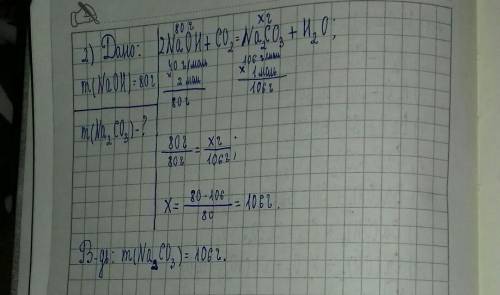 2) Дано:
m(NaOH)=80г
m(Na₂CO₃)-?
80г xг
2NaOH + CO₂ = Na₂CO₃ + H₂O;
40г/моль 106г/моль
x 2 моль x 1 моль
80г 106г
80г/80г = xг/106г;
X = 80·106/80 = 106г.
В-дь: m(Na₂CO₃) = 106г.